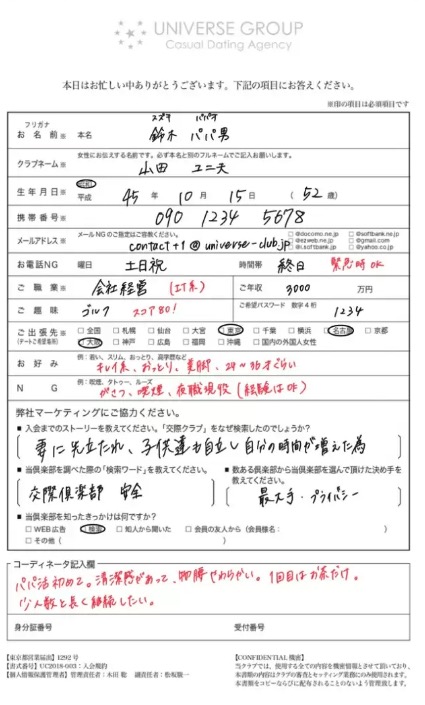 UNIVERSE GROUP
Casual Dating Agency
本日はお忙しい中ありがとうございます。下記の項目にお答えください。
※印の項目は必須項目です
フリガナ スズキ パパオ
お名前※ 本名 鈴木 パパ男
女性にお伝えする名前です。必ず本名と別のフルネームでご記入お願いします。
クラブネーム※ 山田 ユニ夫
生年月日※ 昭和 平成 45年 10月 15日 (52歳)
携帯番号※ 090 1234 5678
メールNGのご指定はご容赦ください。
メールアドレス※ contact+1@universe-club.jp □@docomo.ne.jp □@softbank.ne.jp
□@ezweb.ne.jp □@gmail.com
□@i.softbank.jp □@yahoo.co.jp
お電話NG 曜日 土日祝 時間帯 終日 緊急時OK
ご職業※ 会社経営 (IT系) ご年収 3000 万円
ご趣味 ゴルフ スコア80! ご希望パスワード 数字4桁 1234
ご出張先※ □全国 □札幌 □仙台 □大宮 □東京 □千葉 □横浜 □名古屋 □京都
(デートご希望場所) □大阪 □神戸 □広島 □福岡 □沖縄 □国内の外国人女性
例:若い、スリム、おっとり、高学歴など
お好み キレイ系、おっとり、美脚、24〜36才ぐらい
例:喫煙、タトゥー、ルーズ
NG がさつ、喫煙、夜職現役(経験はOK)
弊社マーケティングにご協力ください。
■入会までのストーリーを教えてください。「交際クラブ」をなぜ検索したのでしょうか?
妻に先立たれ、子供達も自立し自分の時間が増えた為
■当倶楽部を調べた際の「検索ワード」を教えてください。
交際倶楽部 安全
■数ある倶楽部から当倶楽部を選んで頂けた決め手を教えてください。
最大手・プライバシー
■当倶楽部を知ったきっかけは何ですか?
□WEB広告 □検索 □知人から聞いた □会員の友人から(会員様名: )
□その他( )
コーディネータ記入欄
パパ活初めて。清潔感があって、物腰やわらかい。1回目はお茶だけ。
少人数と長く継続したい。
身分証番号 受付番号
【東京都営業届出】1292号
【書式番号】UC2018-003:入会規約
【個人情報保護管理者】管理責任者:木田 聡 副責任者:松坂駿一
【CONFIDENTIAL 機密】
当クラブでは、使用する全ての内容を機密情報とさせて頂いており、
本書類の内容はクラブの審査とセッティング業務にのみ使用されます。
本書類をコピーならびに配布されることのないよう管理致します。